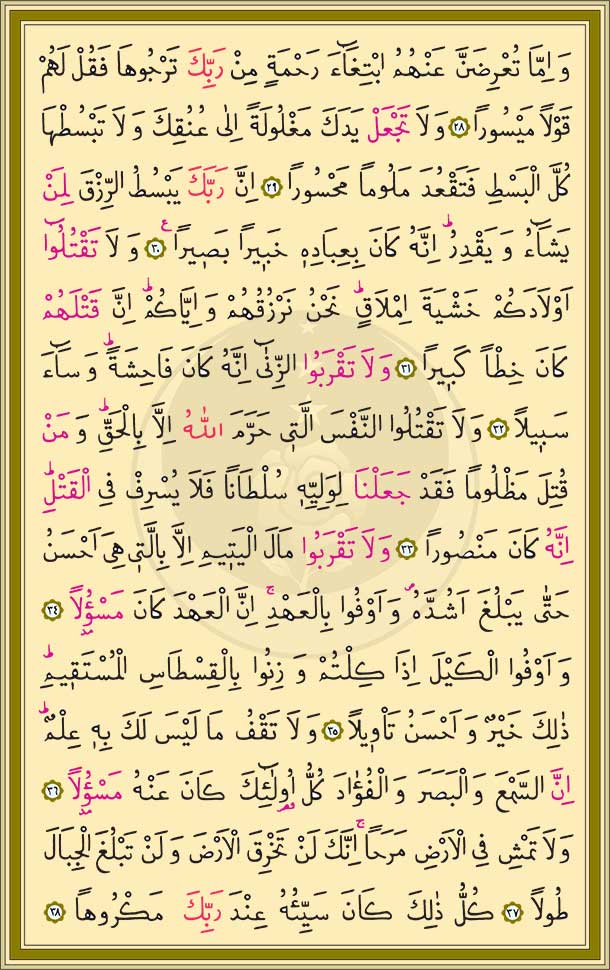 وَاِمَّا تُعْرِضَنَّ عَنْهُمُ ابْتِغَٓاءَ رَحْمَةٍ مِنْ رَبِّكَ تَرْجُوهَا فَقُلْ لَهُمْ
قَوْلاً مَيْسُوراً ﴿٢٨﴾ وَلَا تَجْعَلْ يَدَكَ مَغْلُولَةً اِلٰى عُنُقِكَ وَلَا تَبْسُطْهَا
كُلَّ الْبَسْطِ فَتَقْعُدَ مَلُوماً مَحْسُوراً ﴿٢٩﴾ اِنَّ رَبَّكَ يَبْسُطُ الرِّزْقَ لِمَنْ
يَشَٓاءُ وَيَقْدِرُۜ اِنَّهُ كَانَ بِعِبَادِه۪ خَب۪يراً بَص۪يراً۟ ﴿٣٠﴾ وَلَا تَقْتُلُٓوا
اَوْلَادَكُمْ خَشْيَةَ اِمْلَاقٍۜ نَحْنُ نَرْزُقُهُمْ وَاِيَّاكُمْۜ اِنَّ قَتْلَهُمْ
كَانَ خِطْـٔاً كَب۪يراً ﴿٣١﴾ وَلَا تَقْرَبُوا الزِّنٰٓى اِنَّهُ كَانَ فَاحِشَةًۜ وَسَٓاءَ
سَب۪يلاً ﴿٣٢﴾ وَلَا تَقْتُلُوا النَّفْسَ الَّت۪ي حَرَّمَ اللّٰهُ اِلَّا بِالْحَقِّۜ وَمَنْ
قُتِلَ مَظْلُوماً فَقَدْ جَعَلْنَا لِوَلِيِّه۪ سُلْطَاناً فَلَا يُسْرِفْ فِي الْقَتْلِۜ
اِنَّهُ كَانَ مَنْصُوراً ﴿٣٣﴾ وَلَا تَقْرَبُوا مَالَ الْيَت۪يمِ اِلَّا بِالَّت۪ي هِيَ اَحْسَنُ
حَتّٰى يَبْلُغَ اَشُدَّهُۖ وَاَوْفُوا بِالْعَهْدِۚ اِنَّ الْعَهْدَ كَانَ مَسْؤُ۫لاً ﴿٣٤﴾
وَاَوْفُوا الْكَيْلَ اِذَا كِلْتُمْ وَزِنُوا بِالْقِسْطَاسِ الْمُسْتَق۪يمِۜ
ذٰلِكَ خَيْرٌ وَاَحْسَنُ تَأْو۪يلاً ﴿٣٥﴾ وَلَا تَقْفُ مَا لَيْسَ لَكَ بِه۪ عِلْمٌۜ
اِنَّ السَّمْعَ وَالْبَصَرَ وَالْفُؤٰادَ كُلُّ اُو۬لٰٓئِكَ كَانَ عَنْهُ مَسْؤُ۫لاً ﴿٣٦﴾
وَلَا تَمْشِ فِي الْاَرْضِ مَرَحاًۚ اِنَّكَ لَنْ تَخْرِقَ الْاَرْضَ وَلَنْ تَبْلُغَ الْجِبَالَ
طُولاً ﴿٣٧﴾ كُلُّ ذٰلِكَ كَانَ سَيِّئُهُ عِنْدَ رَبِّكَ مَكْرُوهاً ﴿٣٨﴾